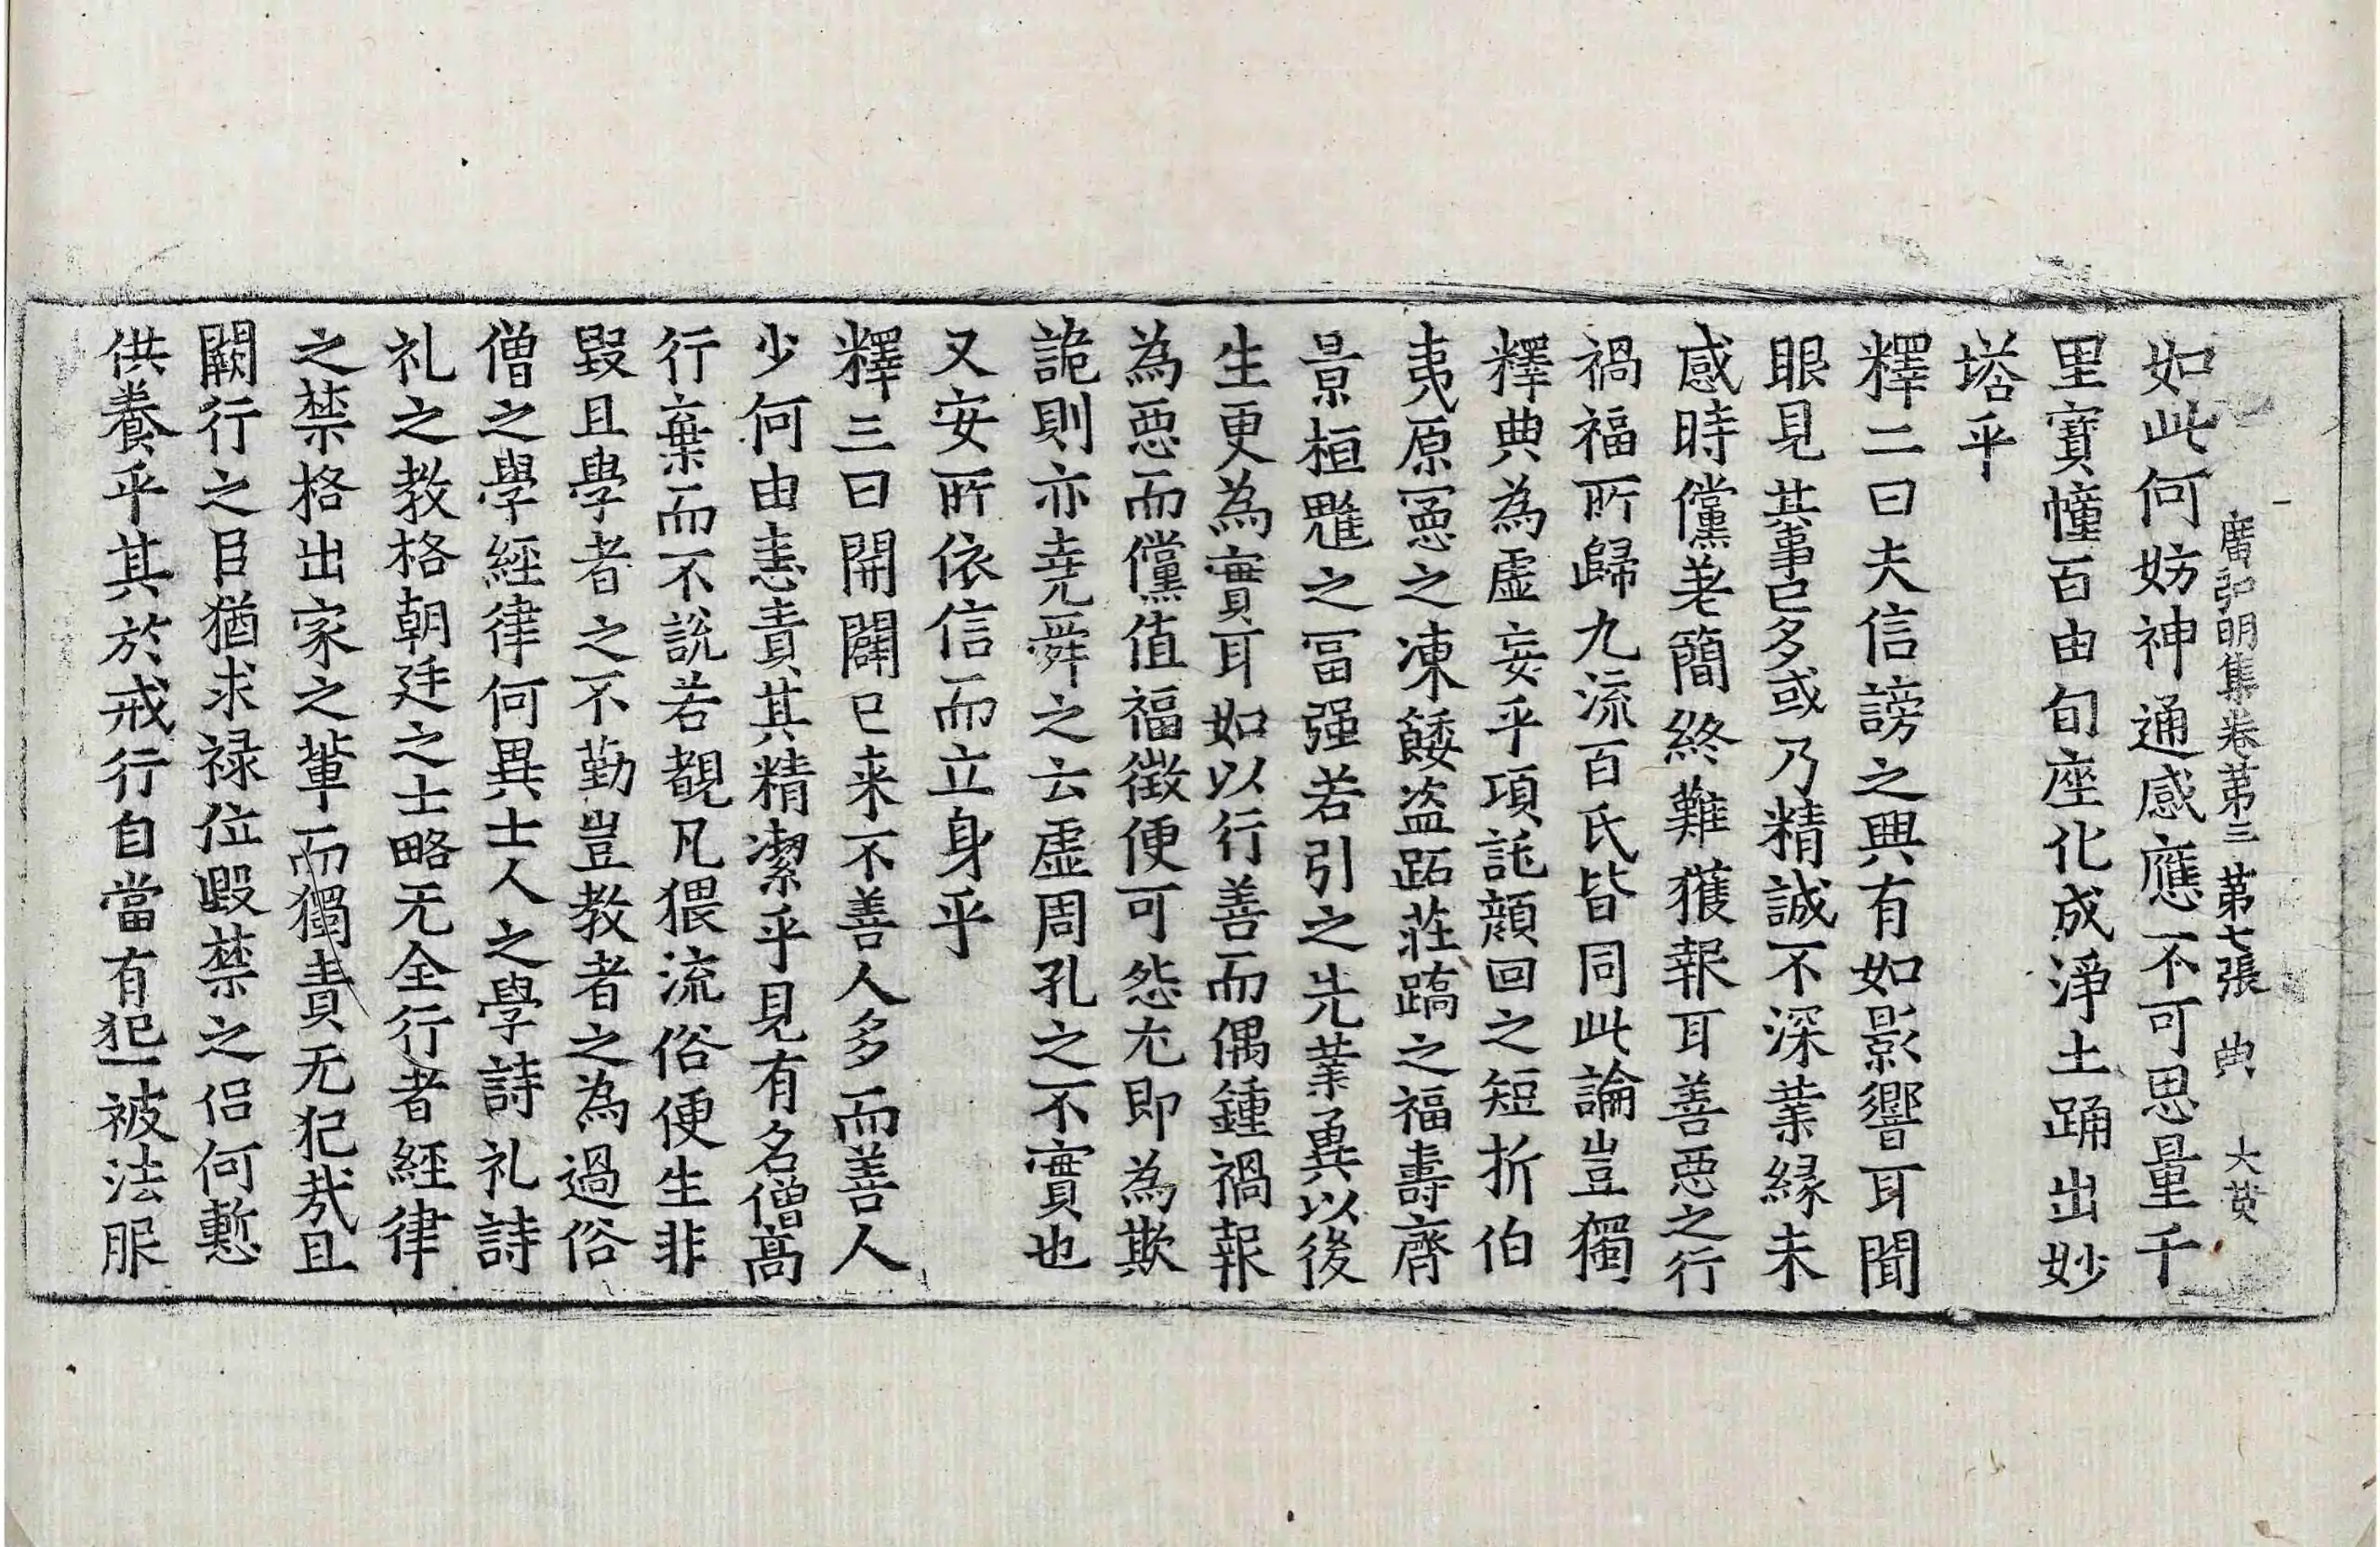 廣弘明集卷苐三 苐七張 典 大
如此何妨神通感應不可思量千
里寶幢百由旬座化成淨土踊出妙
塔乎
釋二曰夫信謗之興有如影響耳聞
眼見其事已多或乃精誠不深業緣未
感時儻差簡終難獲報耳善惡之行
禍福所歸九流百氏皆同此論豈獨
釋典為虛妄乎項託顔回之短折伯
夷原憲之凍餧盗跖莊蹻之福壽齊
景桓魋之冨强若引之先業兾以後
生更為實耳如以行善而偶鍾禍報
為惡而儻值福徵便可怨尤即為欺
詭則亦堯舜之云虛周孔之不實也
又安所依信而立身乎
釋三曰開闢已来不善人多而善人
少何由悉責其精潔乎見有名僧高
行棄而不說若覩凡猥流俗便生非
毀且學者之不勤豈教者之為過俗
僧之學經律何異士人之學詩礼詩
礼之教格朝廷之士略无全行者經律
之禁格出家之軰而獨責无犯㢤且
闕行之臣猶求禄位毀禁之侣何慙
供養乎其於戒行自當有犯一被法服